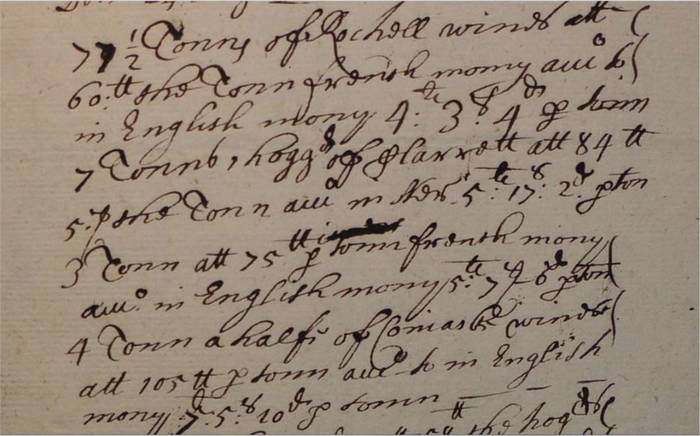 77 1/2 Tonns of Rochell winds att
60:tt the Tonn french mony au:o to
in English mony 4:tt 3:s 4 d p tonn
7 Tonnes, hoggd of Clarrett att 84 tt
5:p the Tonn au:o in 5:tt 17:s 2:d p ton
3 Tonn att 75 tt p tonn french mony
au:o in English mony 5:tt 7 s 8 d p ton
4 Tonn a halfe of winds
att 105 tt p tonn au:o to in English
mony 7: 5:s 10:d p tonn
tt the hog